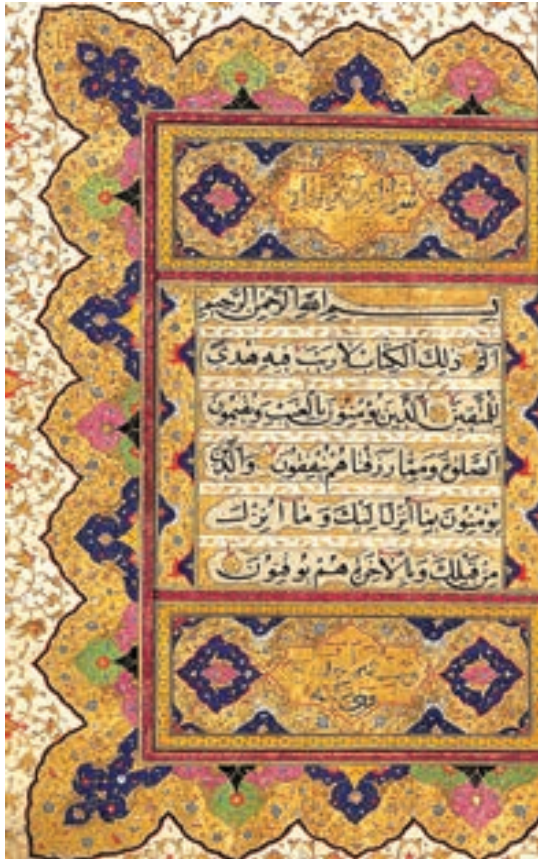 بسم الله الرحمن الرحيم
الم ذلك الكتاب لا ريب فيه هدى
للمتقين الذين يؤمنون بالغيب ويقيمون
الصلوة ومما رزقناهم ينفقون والذين
يؤمنون بما انزل اليك وما انزل
من قبلك وبالاخرة هم يوقنون